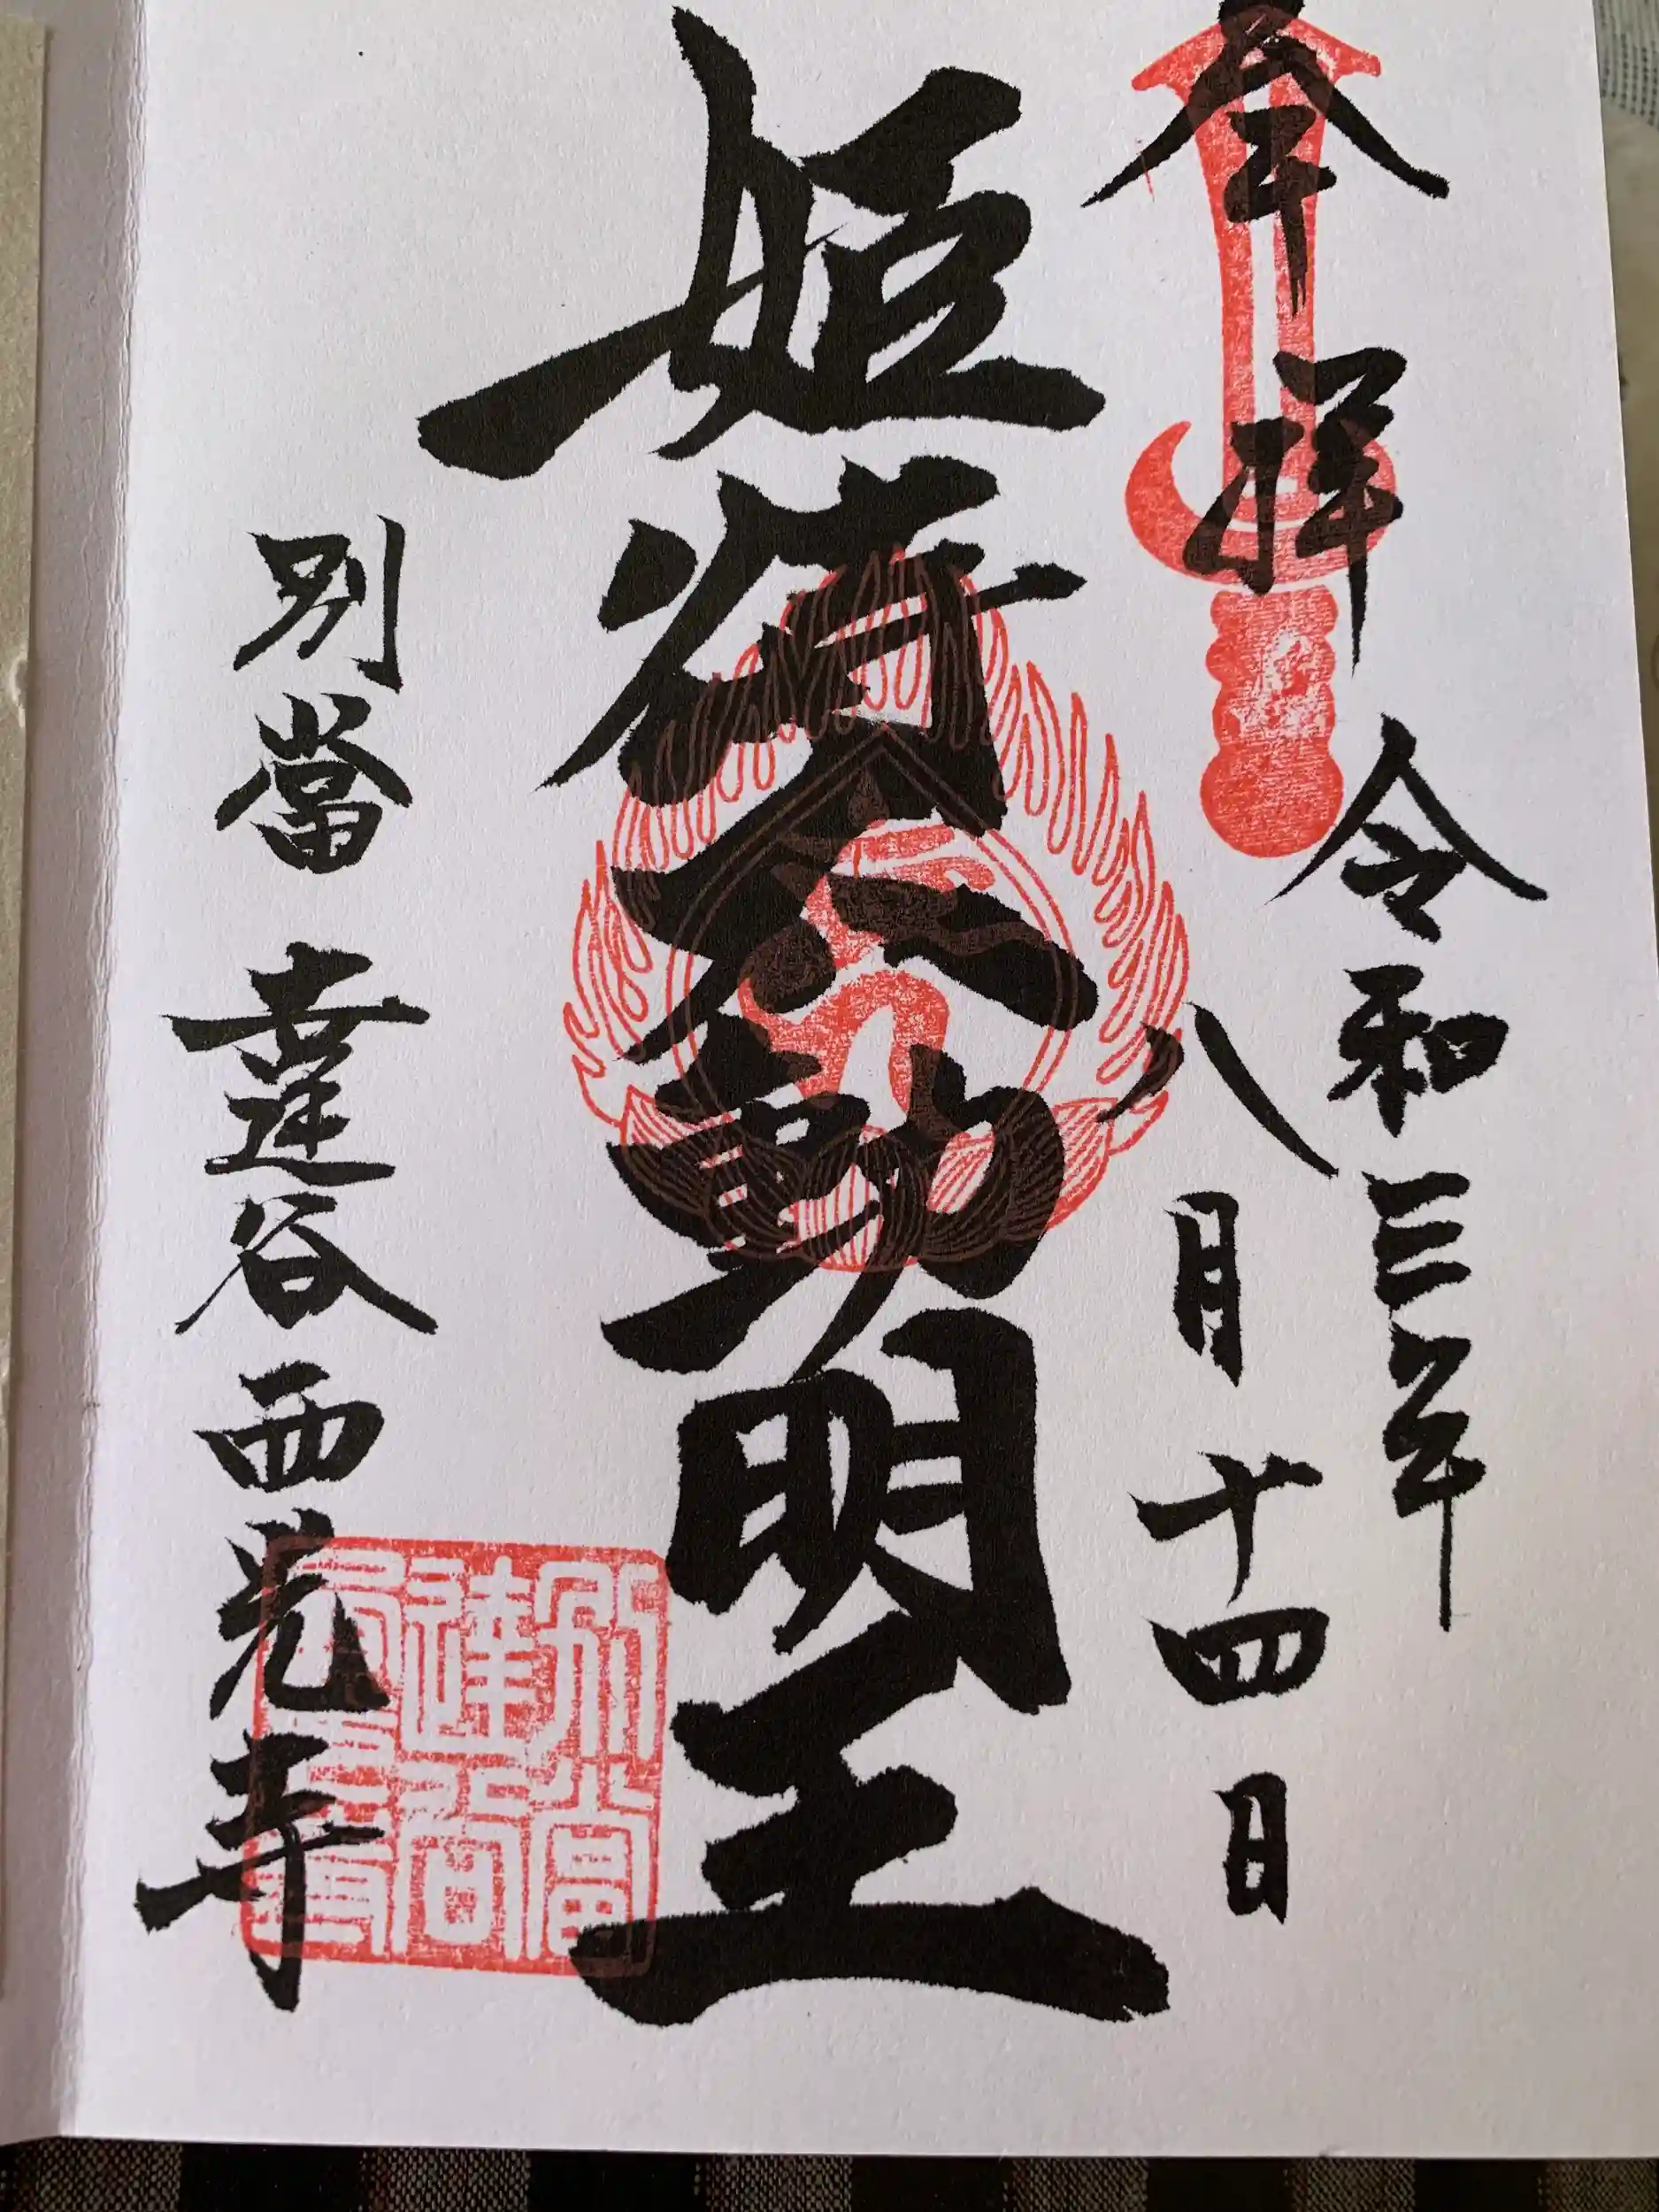 奉拝
令和三年
八月十四日
姫待不動明王
別當 達谷西光寺
別當達谷西光寺